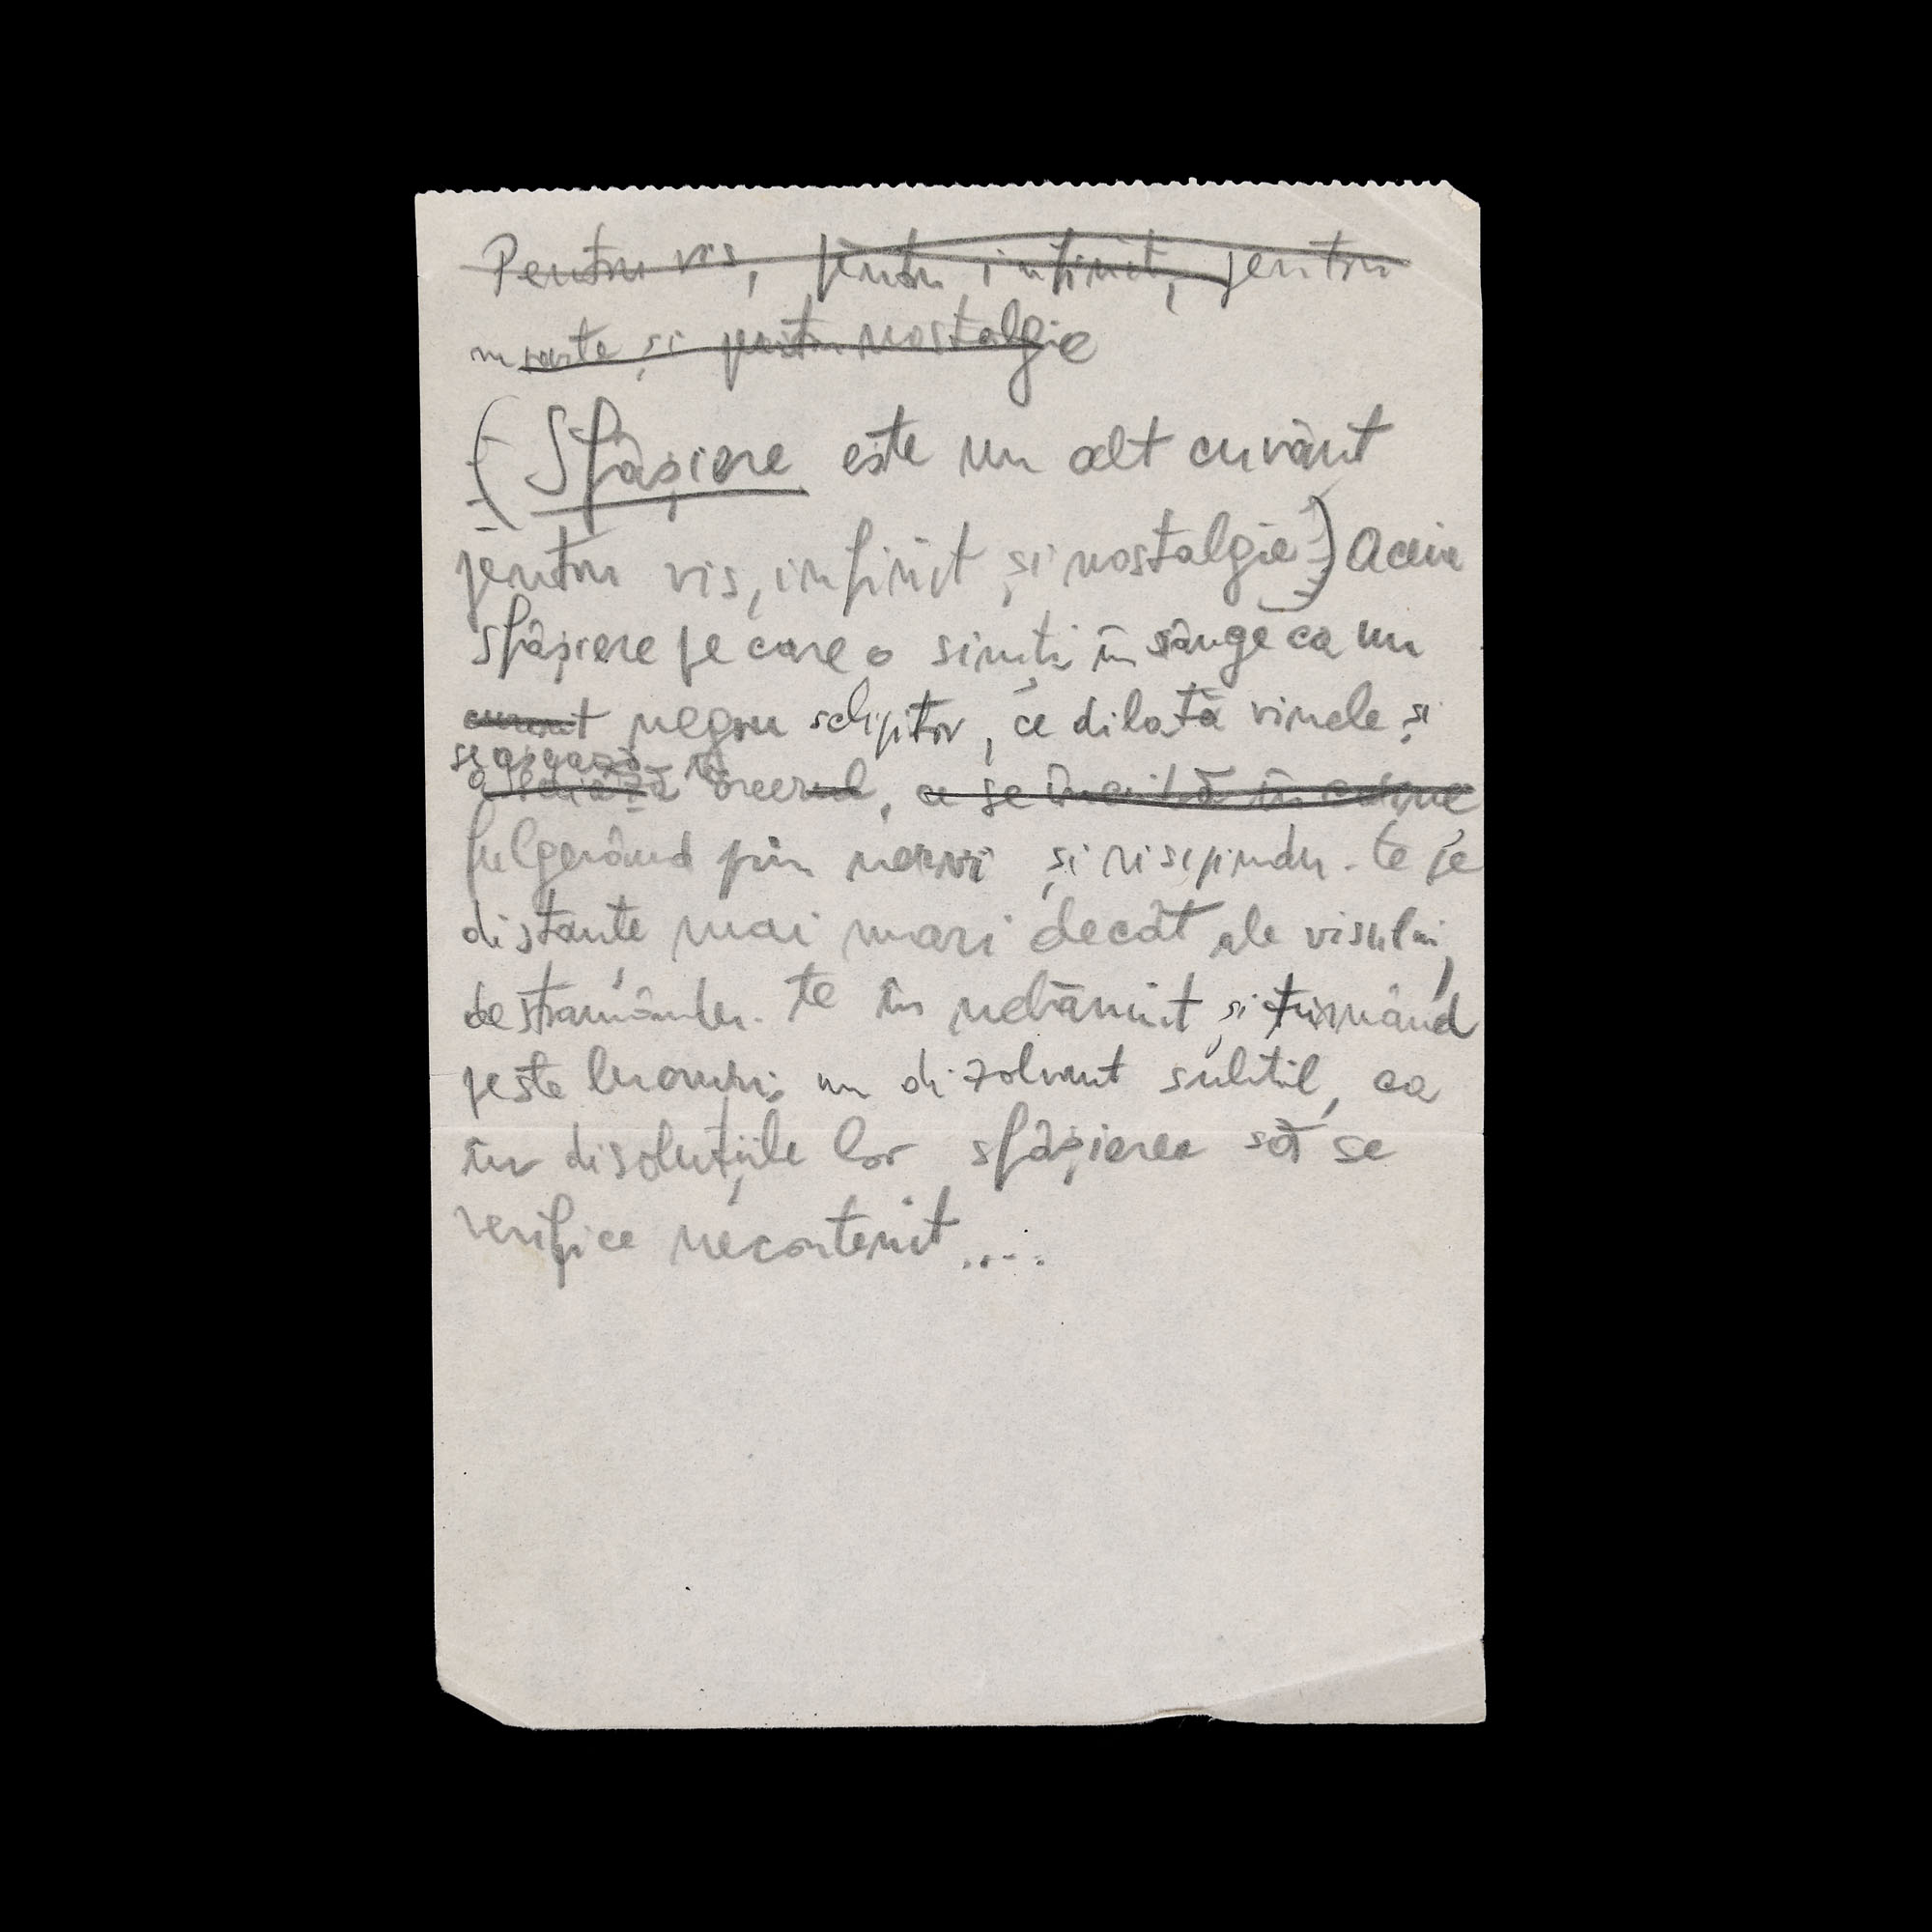 Pentru vis, pentru infinit, pentru
moarte și pentru nostalgie
(Sfâșiere este un alt cuvânt
pentru vis, infinit și nostalgie) Aceia
sfâșiere pe care o simți în sânge ca un
curent negru sclipitor, ce dilată vinele și
se așează în
creerul, ce se în carne
fulgerând prin nervi și risipindu-te pe
distanțe mai mari decât ale visului,
destrămându-te în nebănuit și turnând
peste lucruri un dizolvant subtil, ca
în disoluțiile lor sfâșierea să se
verifice necontenit....